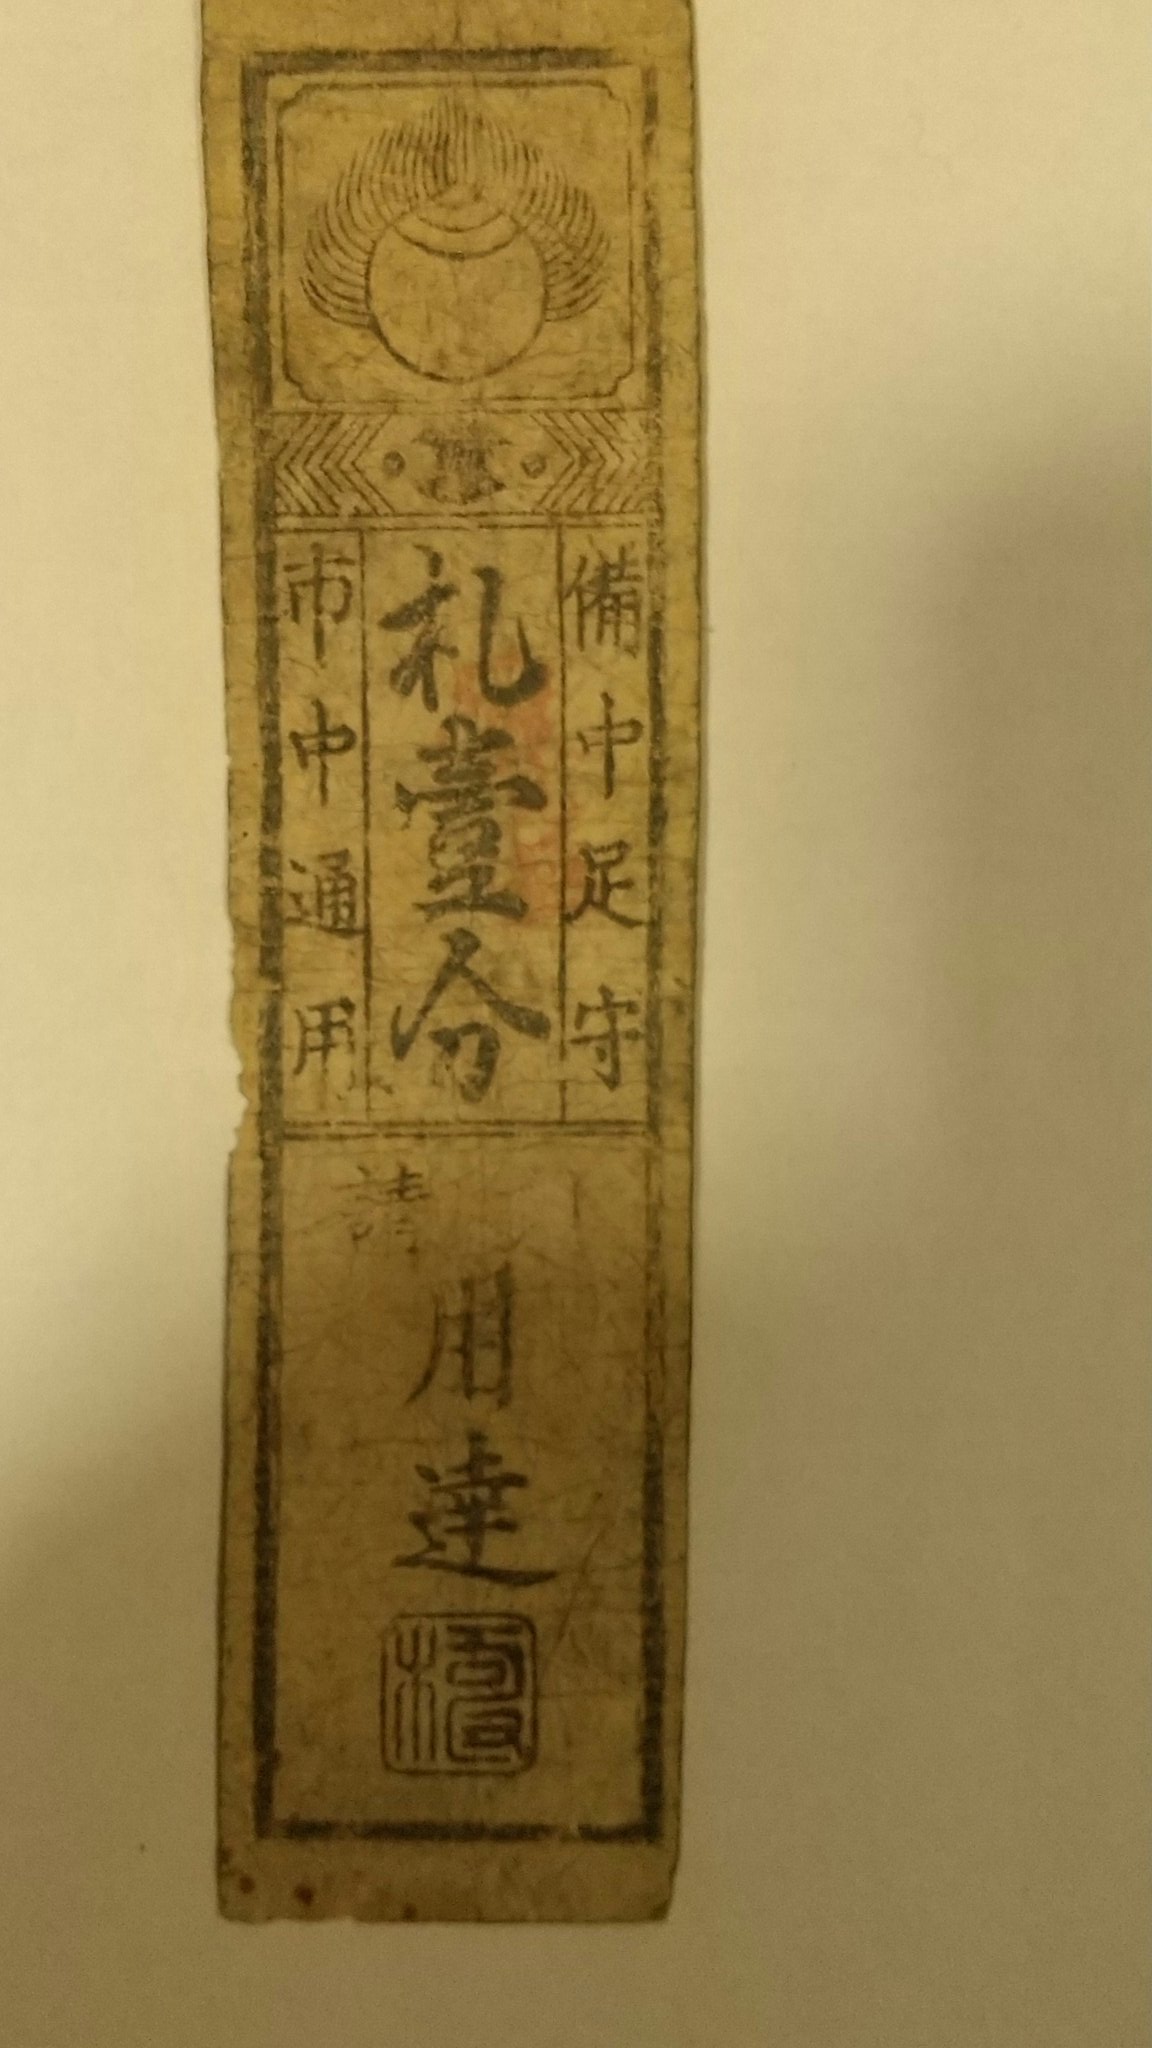 備中足守
札壹分
市中通用
請
用達